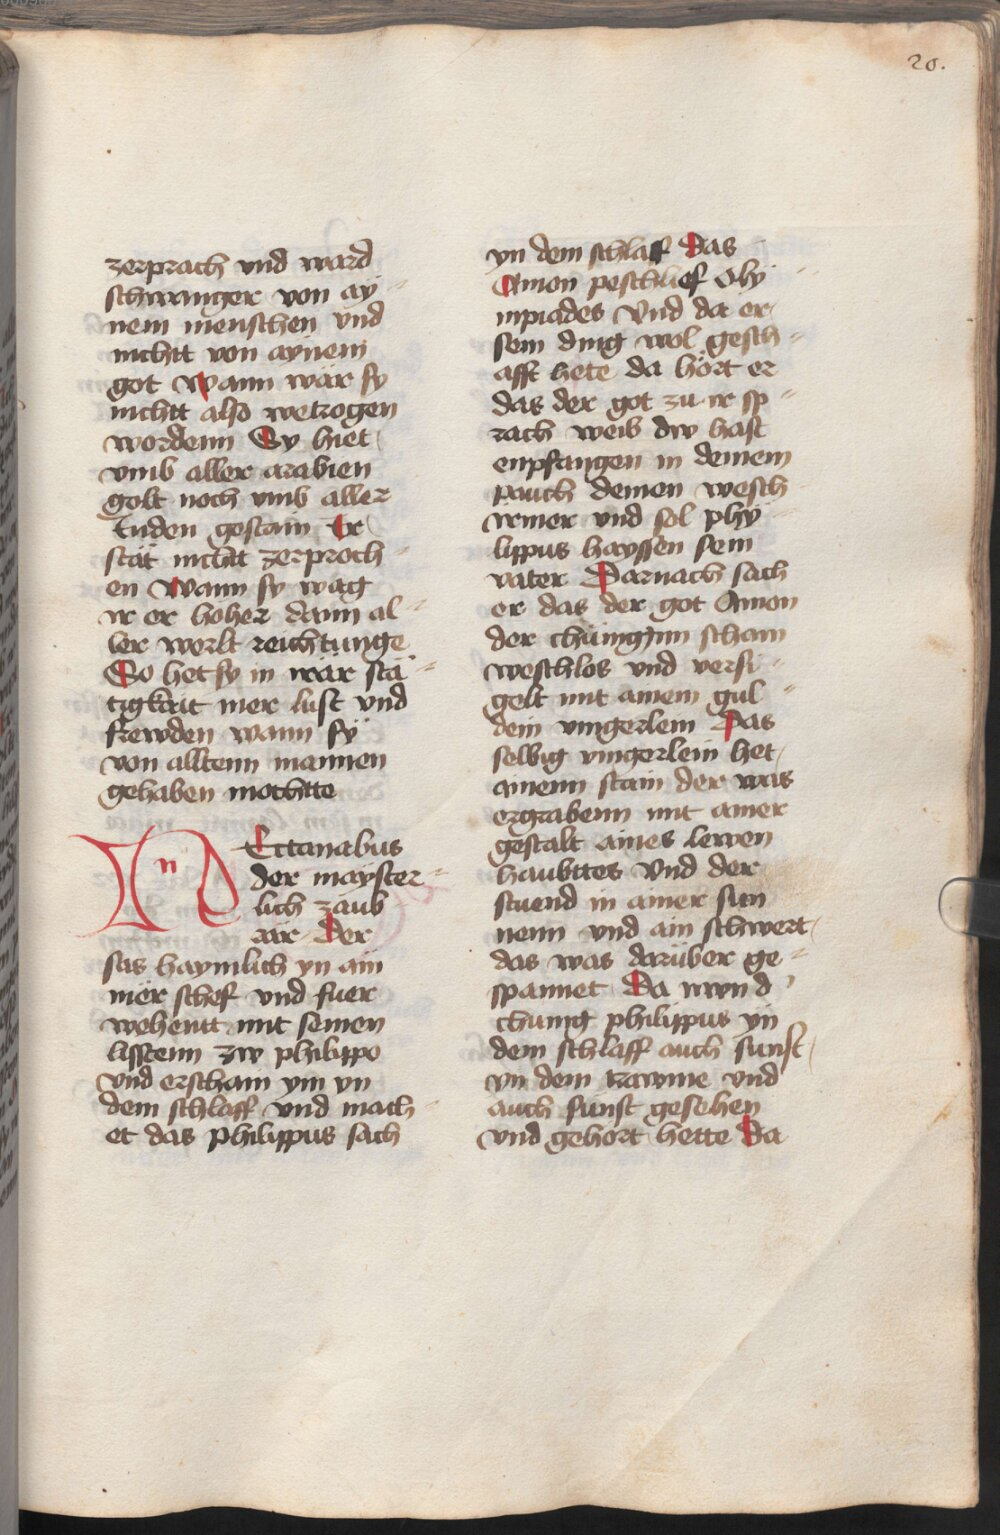 20.
zerprach vnd ward
schwanger von ay
nem menschen vnd
nichtt von aynem
got Wann wär sy
nichtt also wetrogen
wordenn Sy hiet
vmb aller arabien
golt noch vmb aller
Inden gestain Ir
stät nichtt zerproch
en Wann sy wag
ir er hoher dann al
ler werlt reichtunge
So het sy in irar stä
tigkait mer lust vnd
frewden wann sy
von alltenn mannen
gehaben mochtte
N Ectanabus
der mayster
lich zaub
rär Der
sas haymlich yn ain
mer schef vnd fuer
wehentt mit seinen
lisstenn zw philippo
vnd erschain ym yn
dem schlaff vnd mach
et das philippus sach
yn dem schlaf Das
Amon peschlief Oly
mpiades Vnd da er
sein ding wol gesch
afft hete da hört er
das der got zu ir sp
rach weib dw hast
enpfangen in deinem
pauch deinen wesch
irmer vnd sol phy
lippus hayssen sein
vater Darnach sach
er das der got Amon
der chüniginn scham
weschlos vnd versi
gelt mit ainem gul
dein vingerlein Das
selbig vingerlein het
ainenn stain der was
ergrabenn mit ainer
gestalt aines lewen
haubttes Vnd der
stuend in ainer sun
nenn vnd ain schwert
das was darüber ge
spannet Da nwn d
chunig philippus yn
dem schlaff auch sunst
yn dem trawme vnd
auch sunst gesehen
vnd gehort hette Da